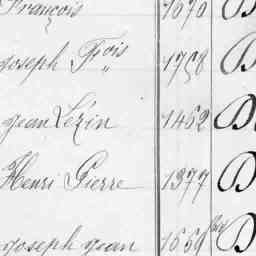 François 1070 D
Joseph Fçois 1758 D
Jean Lezin 1462 D
Henri Pierre 1377 D
Joseph Jean 1659 D